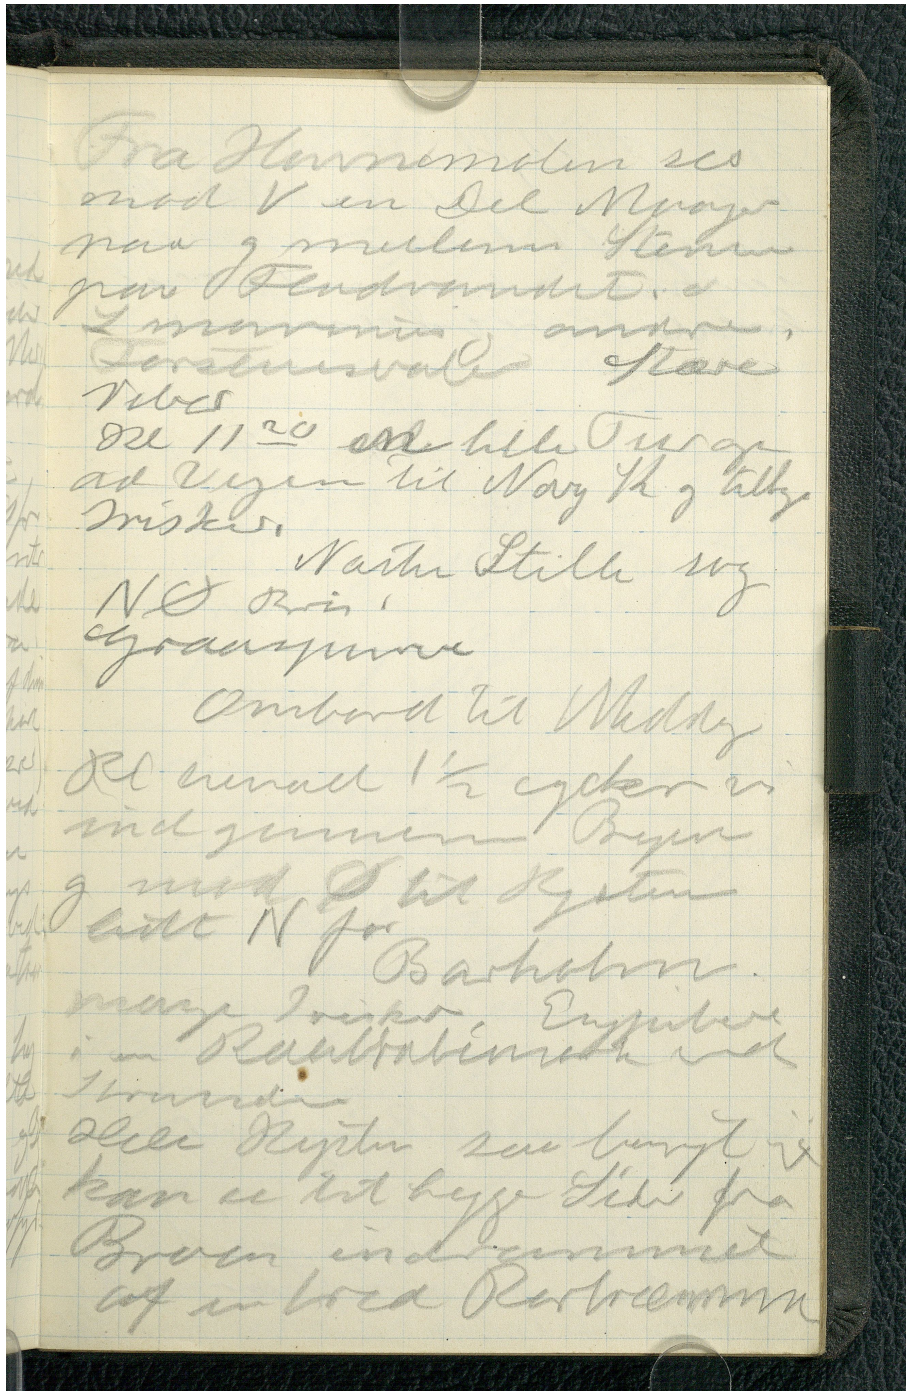 Fra Havnemolen ses
mod V en Del Maager
paa g mellem Stenene
paa Fladvandet.
L marinus, andre,
Forstuesvale Stære
Viber
Kl 11 20 en lille Tur op
ad Vejen til Nørg K g tilbage
Irisker.
Næsten Stille svag
NØ Bris.
Graaspurve
Ombord til Middag
Kl henved 1 1/2 cykler vi
ind gennem Byen
g mod Ø til Kysten
lidt N for
Barholm.
mange Irisker, Engpibere
i en Kaalrabimark ved
Stranden
Hele Kysten saa langt vi
kan se til begge Sider fra
Broen indrammet
af en bred Rørbræmme